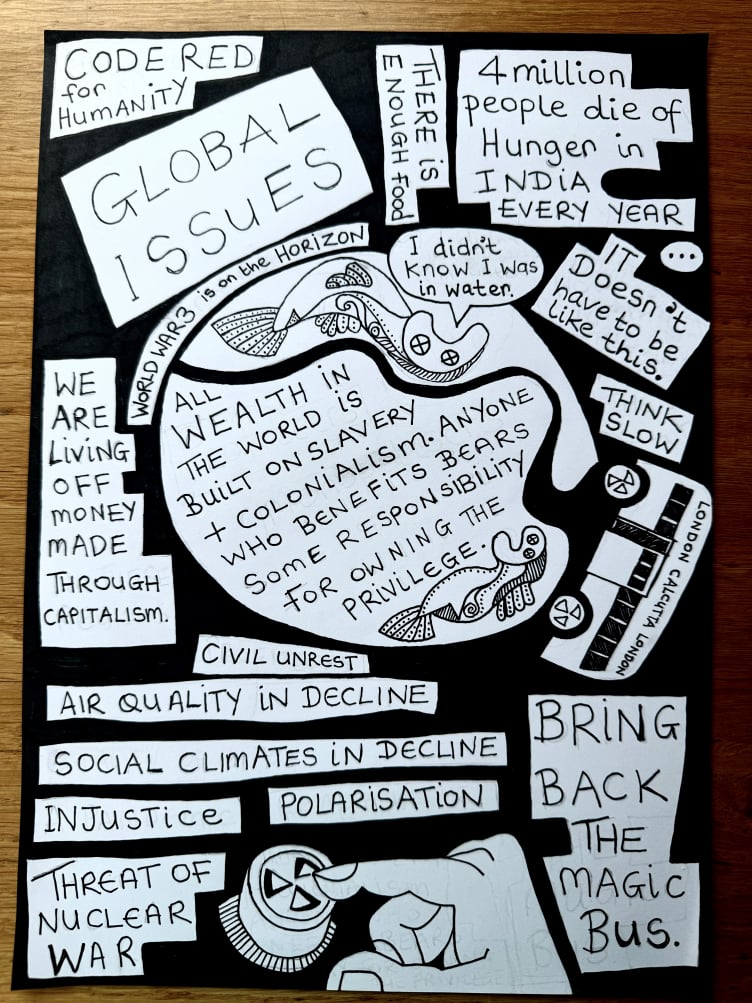 CODE RED
for
HUMANITY
GLOBAL
ISSUES
THERE is
ENOUGH food
4 million
people die of
Hunger in
INDiA
EVERY YEAR
...
IT
Doesn't
have to be
like this.
WORLD WAR 3 is on the HORIZON
I didn't
know I was
in water.
THINK
SLOW
WE
ARE
LiViNG
OFF
MONEY
MADE
THROUGH
CAPITALISM.
ALL
WEALTH iN
THE WORLD iS
BUiLT ON SLAVERY
+ COLONiALiSM. ANYONE
WHO BENEFiTS BEARS
SOME RESPONSiBiLiTY
FOR OWNiNG THE
PRiViLEGE.
LONDON CALCUTTA LONDON
CiViL UNREST
AiR QUALiTY iN DECLiNE
SOCiAL CLiMATES iN DECLiNE
INJUSTiCe
POLARiSATiON
THREAT OF
NUCLEAR
WAR
BRiNG
BACK
THE
MAGiC
Bus.